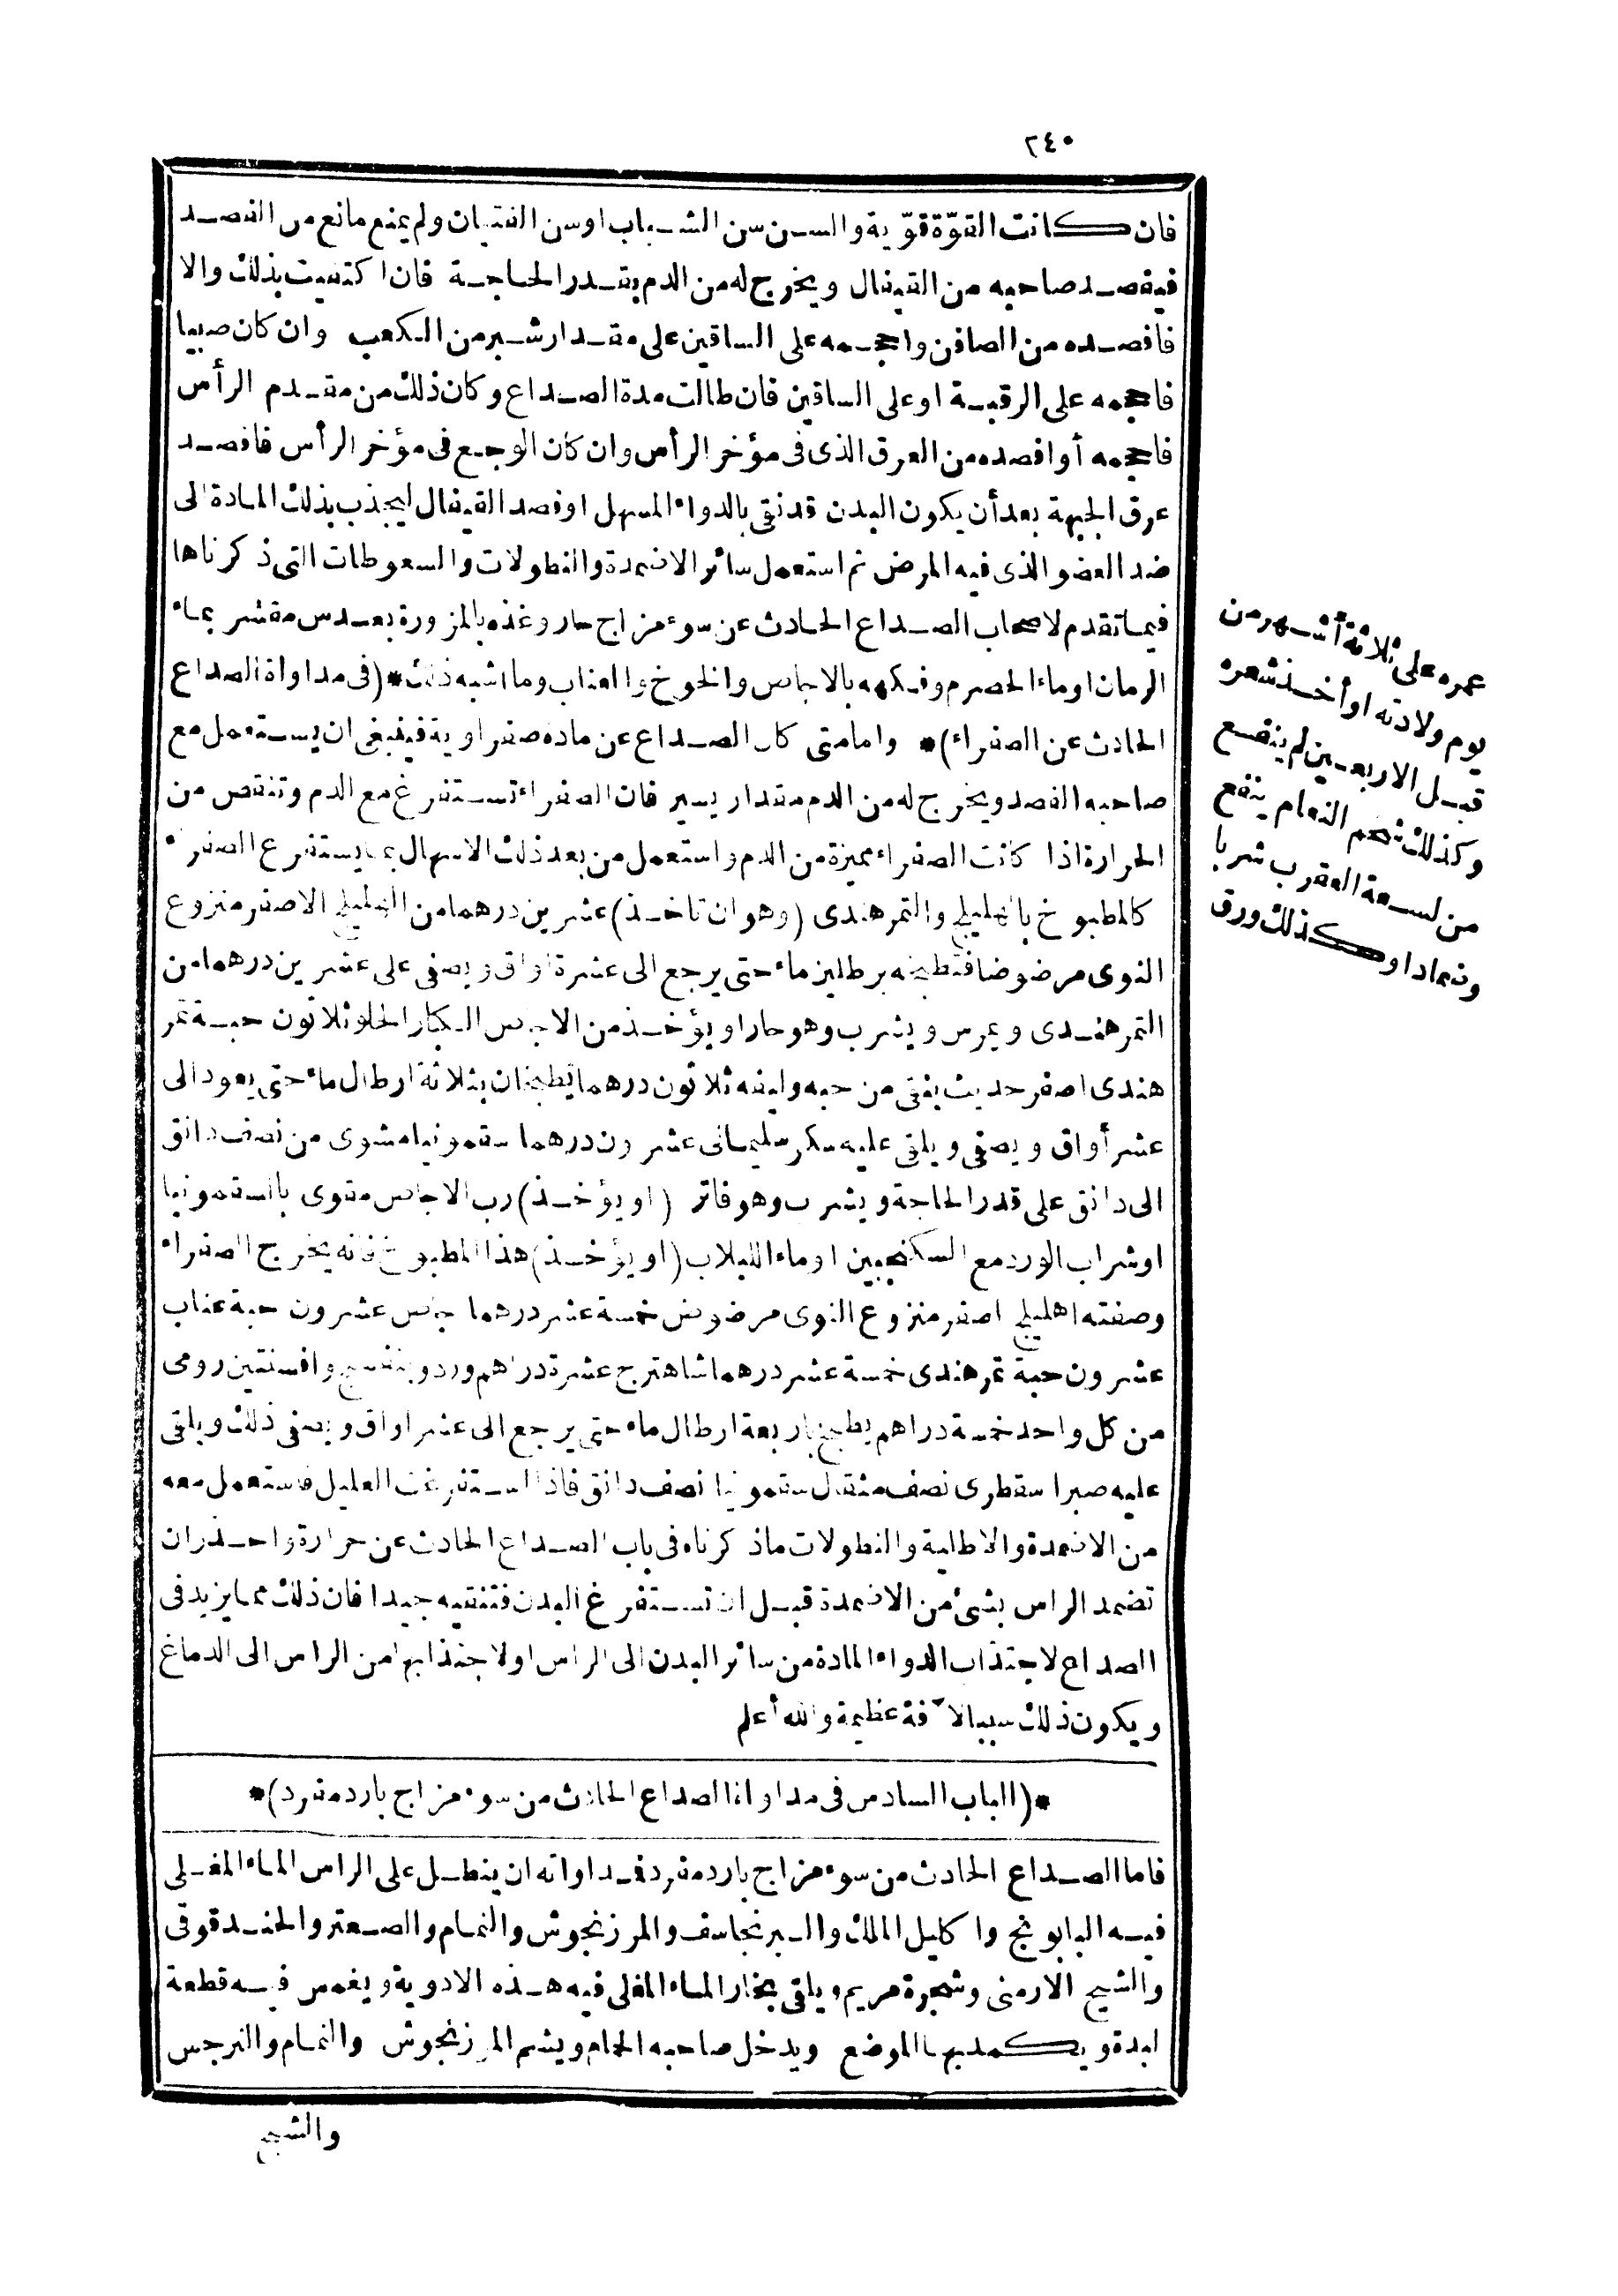 ٢٤٠
فان كانت القوّة قوّية والسن سن الشباب او سن الفتيان ولم يمنع مانع من الفصد
فيفصد صاحبه من القيفال ويخرج له من الدم بقدر الحاجة فان اكتفيت بذلك والا
فافصده من الصافن واحجمه على الساقين على مقدار شبر من الكعب وان كان صبيا
فاحجمه على الرقبة او على الساقين فان طالت مدة الصداع وكان ذلك من مقدم الرأس
فاحجمه أو افصده من العرق الذى فى مؤخر الرأس وان كان الوجع فى مؤخر الرأس فافصد
عرق الجبهة بعد أن يكون البدن قد نقى بالدواء المسهل او فصد القيفال ليجذب بذلك المادة الى
ضد العضو الذى فيه المرض ثم استعمل سائر الاضمدة والنطولات والسعوطات التى ذكرناها
فيما تقدم لاصحاب الصداع الحادث عن سوء مزاج حار وغذه بالمزورة بعدس مقشر بماء
الرمان او ماء الحصرم وفكهه بالاجاص والخوخ والعناب وما اشبه ذلك *(فى مداواة الصداع
الحادث عن الصفراء)* وامامتى كان الصداع عن مادة صفراوية فينبغى ان يستعمل مع
صاحبه الفصد ويخرج له من الدم مقدار يسير فان الصفراء تستفرغ مع الدم وتنقص من
الحرارة اذا كانت الصفراء مميزة من الدم واستعمل من بعد ذلك الاسهال بما يستفرغ الصفراء
كالمطبوخ بالهليلج والتمر هندى (وهو ان تاخذ) عشرين درهما من الهليلج الاصفر منزوع
النوى مرضوضا فتطبخه برطلين ماء حتى يرجع الى عشرة اواق ويصفى على عشرين درهما من
التمر هندى ويمرس ويشرب وهو حار او يؤخذ من الاجاص الكبار الحلو ثلاثون حبة تمر
هندى اصفر حديث ينقى من حبه وليفه ثلاثون درهما يطبخان بثلاثة ارطال ماء حتى يعود الى
عشر أواق ويصفى ويلقى عليه سكر سليمانى عشرون درهما سقمونيا مشوى من نصف دانق
الى دانق على قدر الحاجة ويشرب وهو فاتر (او يؤخذ) رب الاجاص مقوى بالسقمونيا
او شراب الورد مع السكنجبين او ماء اللبلاب (او يؤخذ) هذا المطبوخ فانه يخرج الصفراء
وصفته اهليلج اصفر منزوع النوى مرضوض خمسة عشر درهما جاص عشرون حبة عناب
عشرون حبة تمر هندى خمسة عشر درهما شاهترج عشرة دراهم ورد وبنفسج وافسنتين رومى
من كل واحد خمسة دراهم يطبخ باربعة ارطال ماء حتى يرجع الى عشر اواق ويصفى ذلك ويلقى
عليه صبرا سقطرى نصف مثقال سقمونيا نصف دانق فاذا استفرغت العليل فاستعمل معه
من الاضمدة والاطلية والنطولات ماذكرناه فى باب الصداع الحادث عن حرارة واحذر ان
تضمد الراس بشئ من الاضمدة قبل ان تستفرغ البدن فتنقيه جيدا فان ذلك مما يزيد فى
الصداع لاجتذاب الدواء المادة من سائر البدن الى الراس او لاجتذابها من الراس الى الدماغ
ويكون ذلك سببا لآفة عظيمة والله أعلم
*(الباب السادس فى مداواة الصداع الحادث من سوء مزاج بارد مفرد)*
فاما الصداع الحادث من سوء مزاج بارد مفرد فمداواته ان ينطل على الراس الماء المغلى
فيه البابونج واكليل الملك والبرنجاسف والمرزنجوش والنمام والصعتر والحندقوقى
والشيح الارمنى وشجرة مريم ويلقى بخار الماء المغلى فيه هذه الادوية ويغمس فيه قطعة
لبدة ويكمد بها الموضع ويدخل صاحبه الحمام ويشم المرزنجوش والنمام والنرجس
والشيح
عمره على ثلاثة أشهر من
يوم ولادته او أخذ شعره
قبل الاربعين لم ينفع
وكذلك شحم النعام ينفع
من لسعة العقرب شربا
وضمادا وكذلك ورق